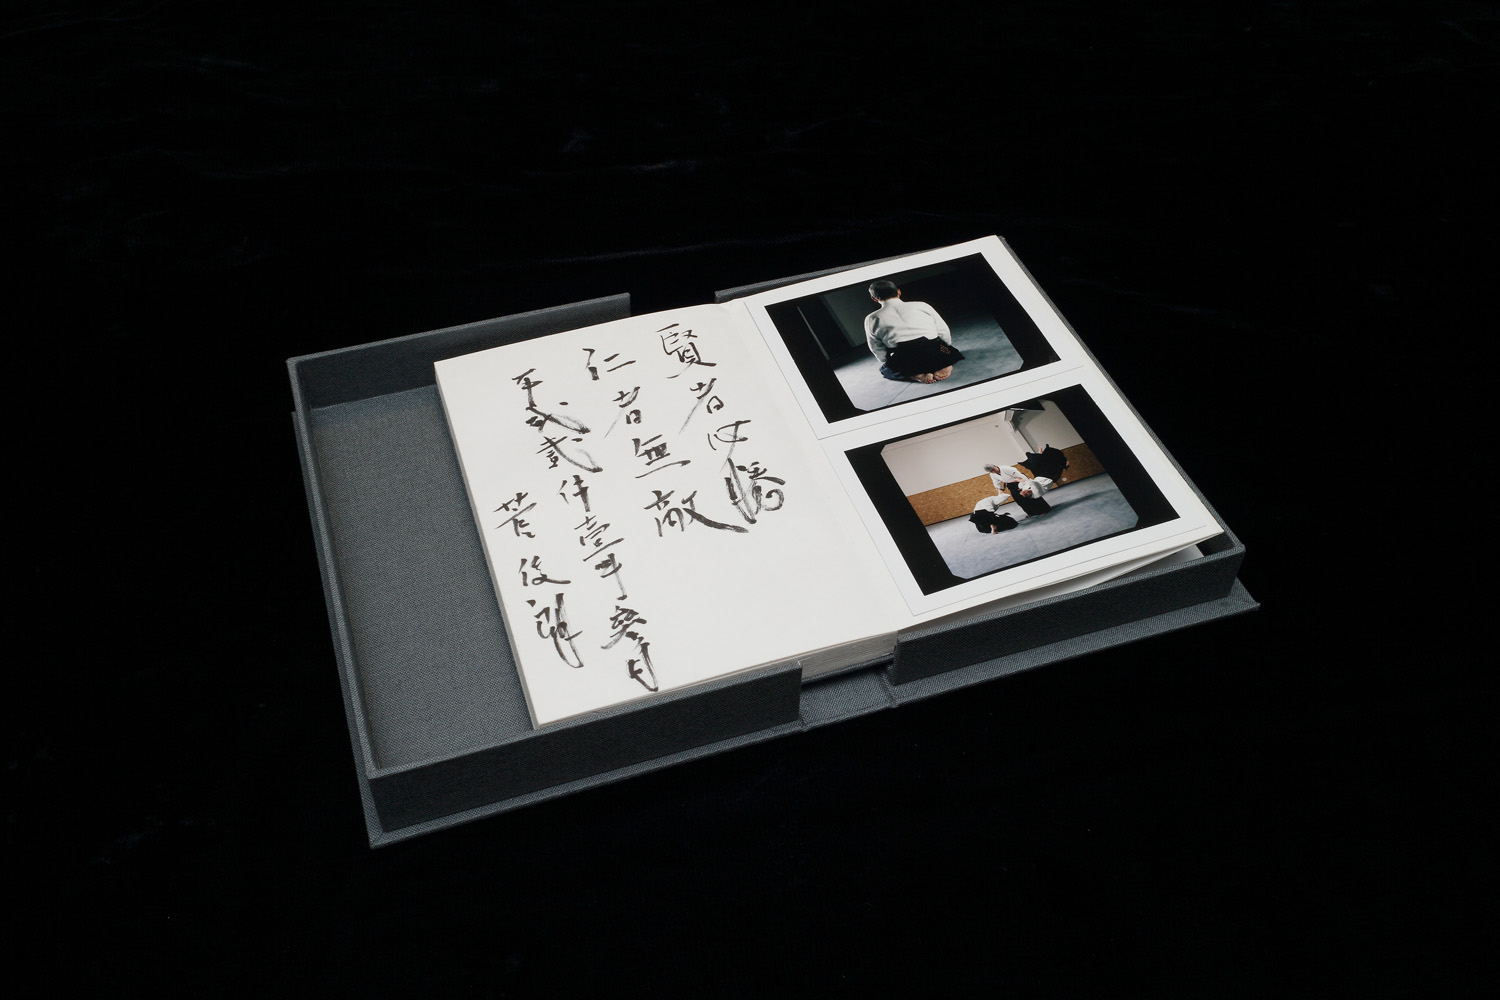 賢者必勝
仁者無敵
平成貳什壹年參月
菅俊郎